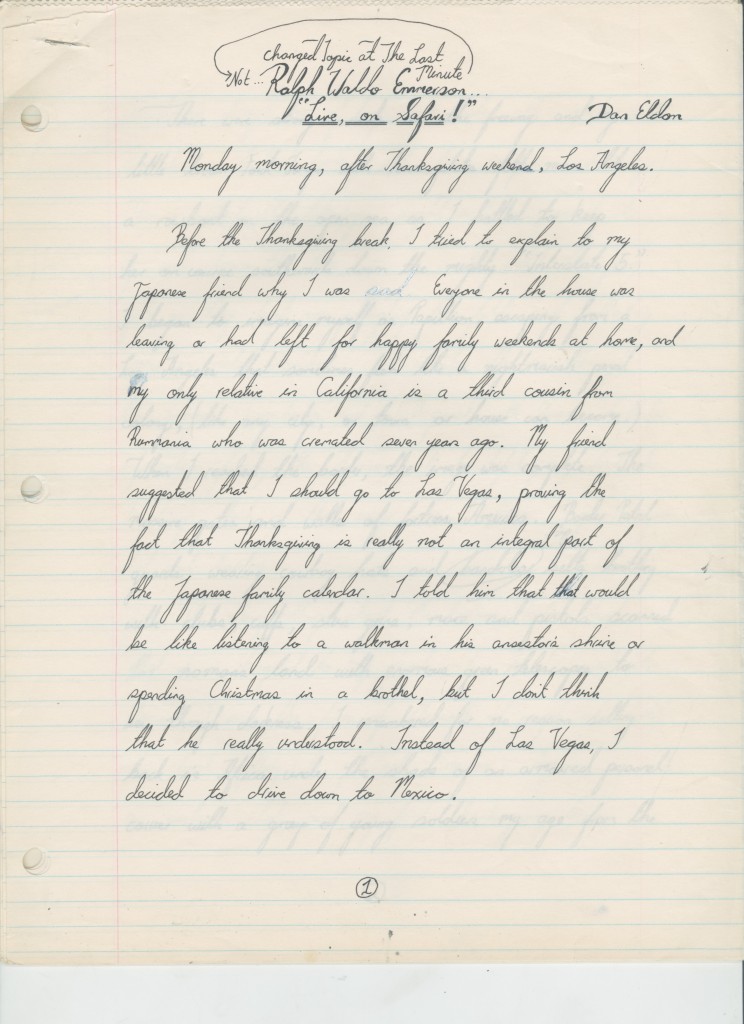 Changed Topic at The Last
Minute
Not... Ralph Waldo Emmerson...
"Live, on Safari!"
Dan Eldon
Monday morning, after Thanksgiving weekend, Los Angeles.
Before the Thanksgiving break, I tried to explain to my
Japanese friend why I was sad. Everyone in the house was
leaving or had left for happy family weekends at home, and
my only relative in California is a third cousin from
Rummania who was cremated seven years ago. My friend
suggested that I should go to Las Vegas, proving the
fact that Thanksgiving is really not an integral part of
the Japanese family calendar. I told him that that would
be like listening to a walkman in his ansestor's shrine or
spending Christmas in a brothel, but I don't think
that he really understood. Instead of Las Vegas, I
decided to drive down to Mexico.
1